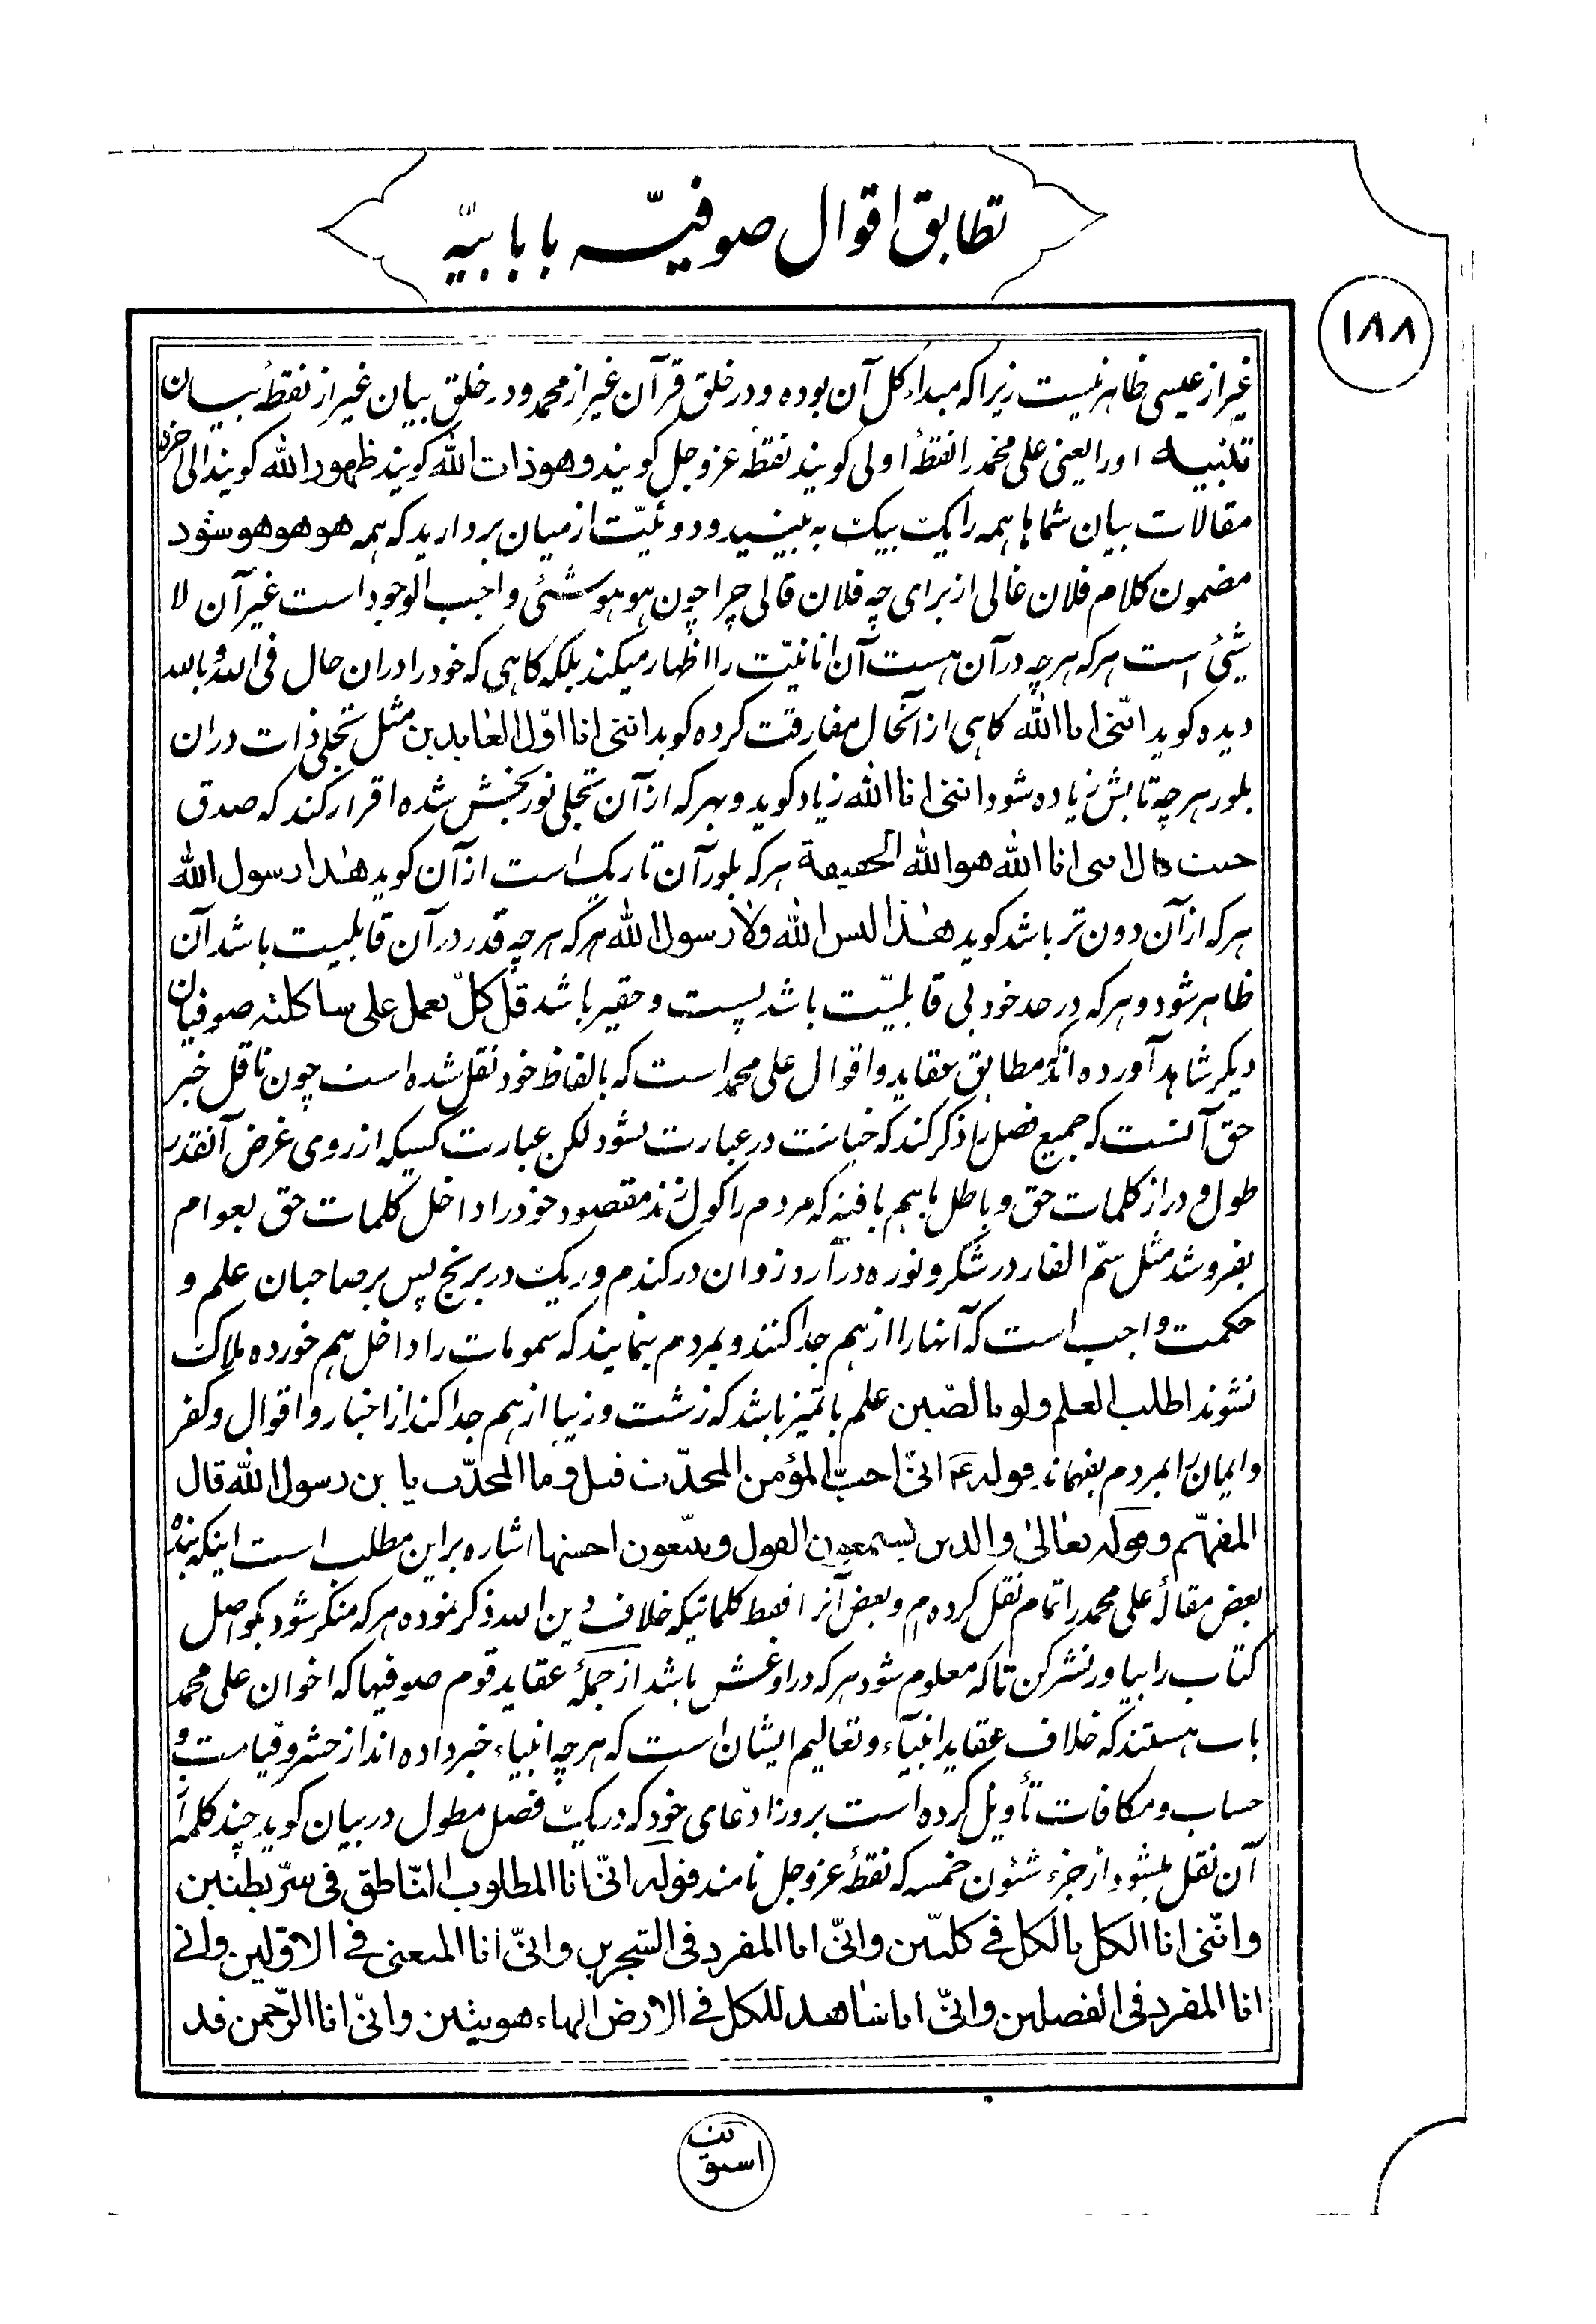 تطابق اقوال صوفیّه با بابیّه
۱۸۸
غیر از عیسی ظاهر نیست زیرا که مبداء کل آن بوده و در خلق قرآن غیر از محمد و در خلق بیان غیر از نقطهٔ بیان
تنبیه اورا یعنی علی محمد را نقطهٔ اولی کویند نقطهٔ عزوجل کویند و هو ذات الله کویند ظهور الله کویند الی آخره
مقالات بیان شماها همه را یک بیک به بینید و دوئیّت از میان بردارید که همه هو هو هو شود
مضمون کلام فلان غالی از برای چه فلان قالی چرا چون هو هو شئی واجب الوجود است غیر آن لا
شیئ است هر که هر چه در آن هست آن انانیّت را اظهار میکند بلکه کاهی که خود را دران حال فی الله و بالله
دیده کوید انّنی انا الله کاهی از آنحال مفارقت کرده کوید اننی انا اوّل العابدین مثل تجلی ذات دران
بلور هر چه تابش زیاده شود اننی انا الله زیاد کوید و بهر که از آن تجلی نور بخش شده اقرار کند که صدق
حیث قال انی انا الله هو الله الحقیقة هر که بلور آن تاریک است از آن کوید هذا رسول الله
هر که از آن دون تر باشد کوید هذا لیس الله ولا رسول الله هر که هر چه قدر در آن قابلیت باشد آن
ظاهر شود و هر که در حد خود بی قابلیّت باشد پست و حقیر باشد قل کلّ یعمل علی شاکلته صوفیان
دیکر شاهد آورده اند مطابق عقاید و اقوال علی محمد است که بالفاظ خود نقل شده است چون ناقل خبر
حق آنست که جمیع فصل را ذکر کند که خیانت در عبارت نشود لکن عبارت کسیکه از روی غرض آنقدر
طول و دراز کلمات حق و باطل باهم بافیه که مردم را کول زند مقصود خود را داخل کلمات حق بعوام
بفروشد مثل سمّ الفار در شکر و نوره در آرد زوان در کندم و ریک در برنج پس بر صاحبان علم و
حکمت واجب است که آنها را از هم جدا کنند و بمردم بنمایند که سمومات را داخل هم خورده هلاک
نشوند اطلب العلم ولو بالصّین علم با تمیز باشد که زشت و زیبا از هم جدا کند از اخبار و اقوال و کفر
و ایمان را بمردم بفهماند قوله انّی احبّ المؤمن المحدّث قیل و ما المحدّث یا بن رسول الله قال
المفهّم و قوله تعالی والذین یستمعون القول ویتّبعون احسنها اشاره بر این مطلب است اینکه بنده
بعض مقالهٔ علی محمد را تمام نقل کرده م و بعض آنرا فقط کلماتیکه خلاف دین الله ذکر نموده هر که منکر شود بکو اصل
کتاب را بیاور نشر کن تا که معلوم شود هر که در او غش باشد از جملهٔ عقاید قوم صوفیها که اخوان علی محمد
باب هستند که خلاف عقاید انبیآء و تعالیم ایشان است که هر چه انبیاء خبر داده اند از حشر و قیامت و
حساب و مکافات تأویل کرده است بروز ادّعای خود که در یک فصل مطول در بیان کوید چند کلمه از
آن نقل میشود از جزء شئون خمسه که نقطهٔ عزوجل نامند قوله انّی انا المطلوب النّاطق فی سرّ بطنین
وانّنی انا الکل بالکل فی کلّین وانّی انا المفرد فی التّجرین وانّی انا المعنی فی الاوّلین وانی
انا المفرد فی الفصلین وانّی انا شاهد للکل فی الارض الهاء هویتین وانّی انا الرّحمن قد